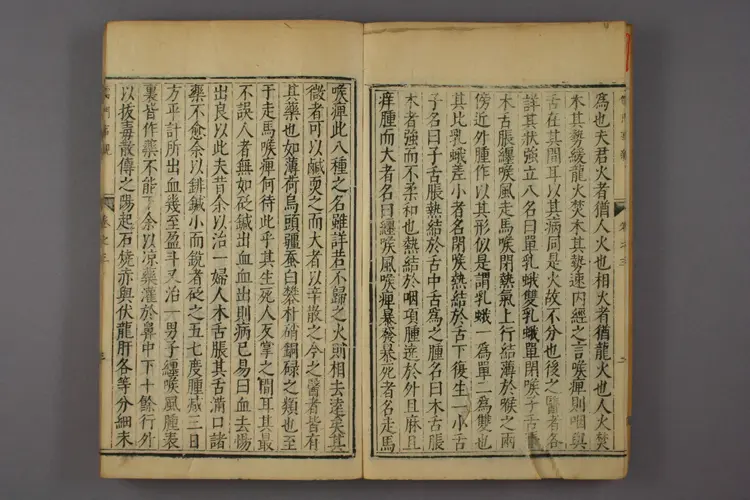 為也夫君火者猶人火也相火者猶龍火也人火焚
木其勢緩龍火焚木其勢速內經之言喉痺則咽與
舌在其間耳以其病同是火故不分也後之醫者各
詳其狀強立八名曰單乳蛾雙乳蛾單閉喉子舌脹
木舌脹纏喉風走馬喉閉熱氣上行結薄於喉之兩
傍近外腫作以其形似是謂乳蛾一為單二為雙也
其比乳蛾差小者名閉喉熱結於舌下復生一小舌
子名曰子舌脹熱結於舌中舌為之腫名曰木舌脹
木者強而不柔和也熱結於咽項腫遶於外且麻且
痒腫而大者名曰纏喉風喉痺暴發暴死者名走馬
喉痺此八種之名雖詳若不歸之火則相去遠矣其
微者可以鹹耎之而大者以辛散之今之醫者皆有
其藥也如薄荷烏頭殭蠶白礬朴硝銅碌之類也至
于走馬喉痺何待此乎其生死人反掌之間耳其最
不誤人者無如砭鍼出血血出則病已易曰血去惕
出良以此夫昔余以治一婦人木舌脹其舌滿口諸
藥不愈余以鈹鍼小而銳者砭之五七度腫減三日
方平計所出血幾至盈斗又治一男子纏喉風腫表
裏皆作藥不能下余以凉藥灌於鼻中下十餘行外
以拔毒散傅之陽起石燒赤與伏龍肝各等分細末
卷之三